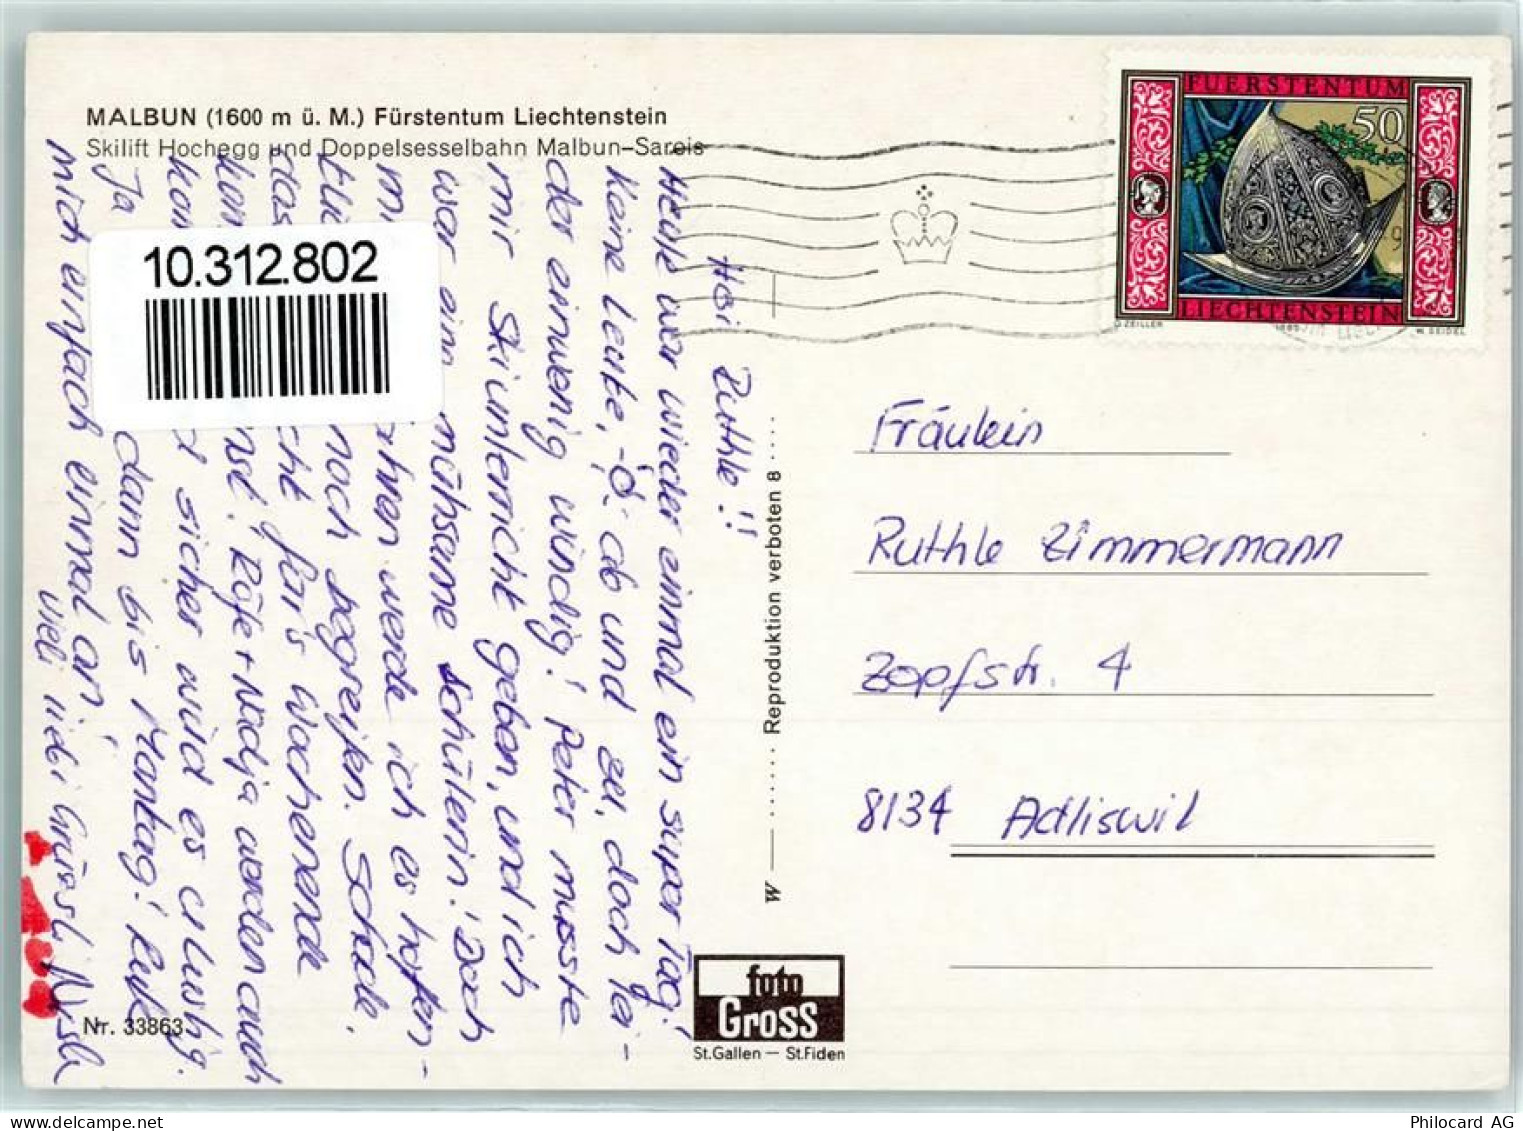 MALBUN (1600 m ü. M.) Fürstentum Liechtenstein
Skilift Hochegg und Doppelsesselbahn Malbun-Sareis
10.312.802
Hoi Ruthle!!
Heute war wieder einmal ein super Tag!
Keine Leute, ab und zu, doch lei-
der einwenig windig! Peter musste
mir Skiunterricht geben, und ich
war eine mühsame Schülerin! Doch
werde ich es hoffen-
noch begreifen. Schade,
das für's Wochenende
Nadja werden auch
sicher wird es lustig.
Ja dann bis Montag!
mich einfach einmal an!
Vieli liebi Grüssli
Nr. 33863
W
Reproduktion verboten 8
foto
Gross
St.Gallen — St.Fiden
FUERSTENTUM
50
LIECHTENSTEIN
O. ZEILLER
1985
W. SEIDEL
Fräulein
Ruthle Zimmermann
Zopfstr. 4
8134 Adliswil
Philocard AG